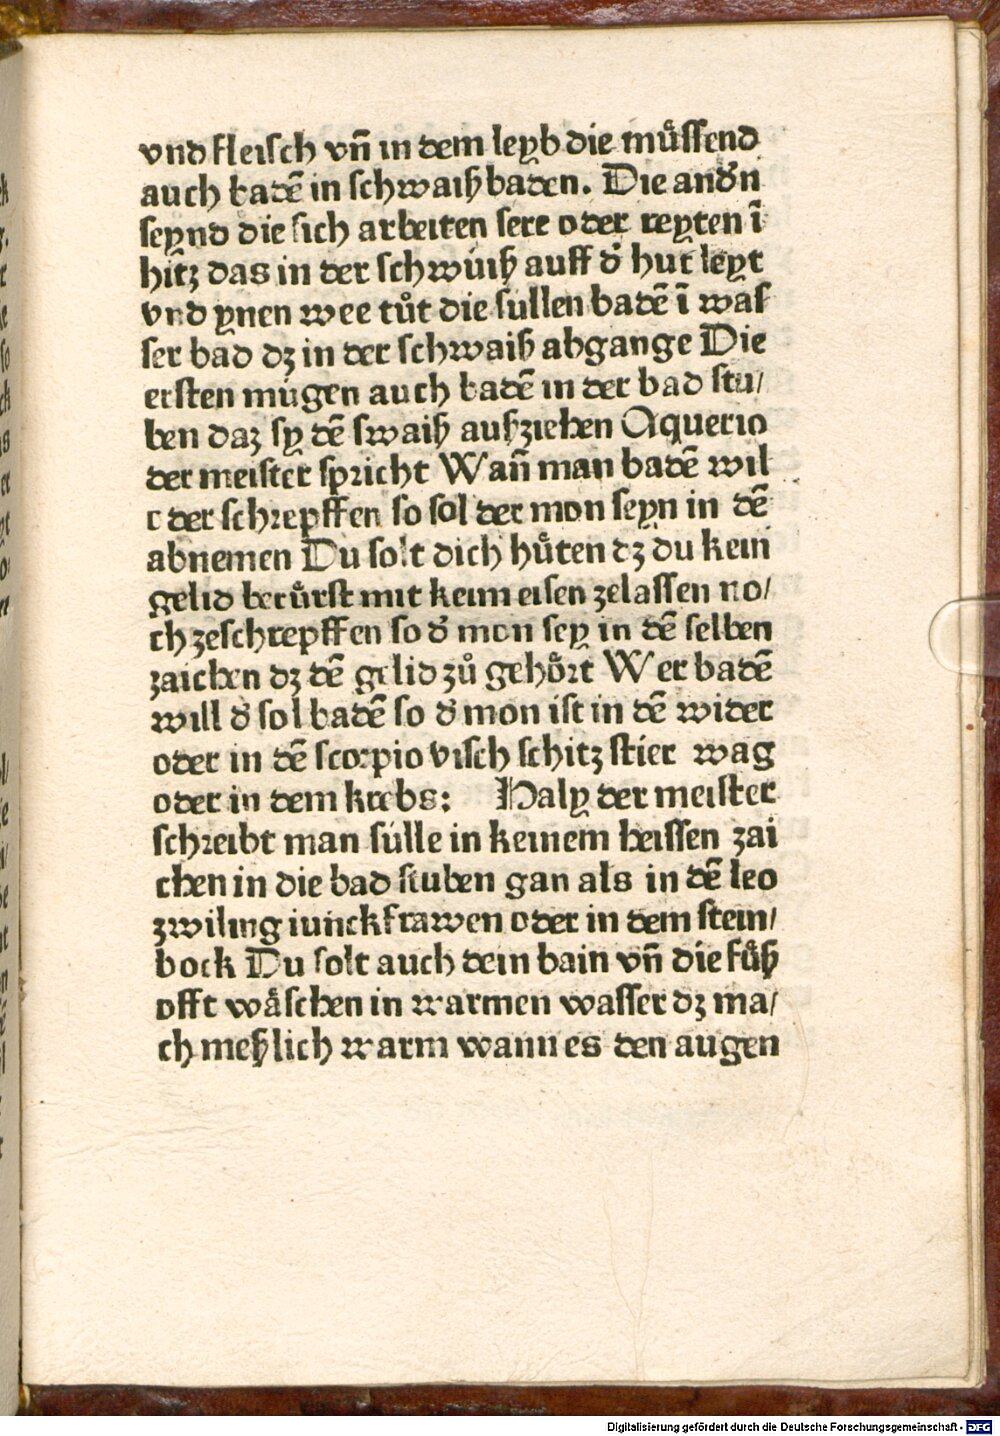 vnd fleisch vñ in dem leyb die muͤssend
auch badē in schwaiß baden. Die andn̄
seynd die sich arbeiten sere oder reyten ī
hitz das in der schwúiß auff d̕ hut leyt
vnd ynen wee tuͦt die sullen badē ī was
ser bad dz in der schwaiß abgange Die
ersten múgen auch badē in der bad stu/
ben daz sy dē swaiß außziehen Aquerio
der meister spricht Wañ man badē wil
o der schrepffen so sol der mon seyn in dē
abnemen Du solt dich huͤten dz du kein
gelid beruͤrst mit keim eisen zelassen no/
ch zeschrepffen so d̕ mon sey in dē selben
zaichen dz dē gelid zuͦ gehoͤrt Wer badē
will d̕ sol badē so d̕ mon ist in dē wider
oder in dē scorpio visch schitz stier wag
oder in dem krebs: Haly der meister
schreibt man súlle in keinem heissen zai
chen in die bad stuben gan als in dē leo
zwiling iunckfrawen oder in dem stein/
bock Du solt auch dein bain vñ die fuͤß
offt waͤschen in warmen wasser dz ma/
ch meßlich warm wann es den augen
Digitalisierung gefördert durch die Deutsche Forschungsgemeinschaft - DFG